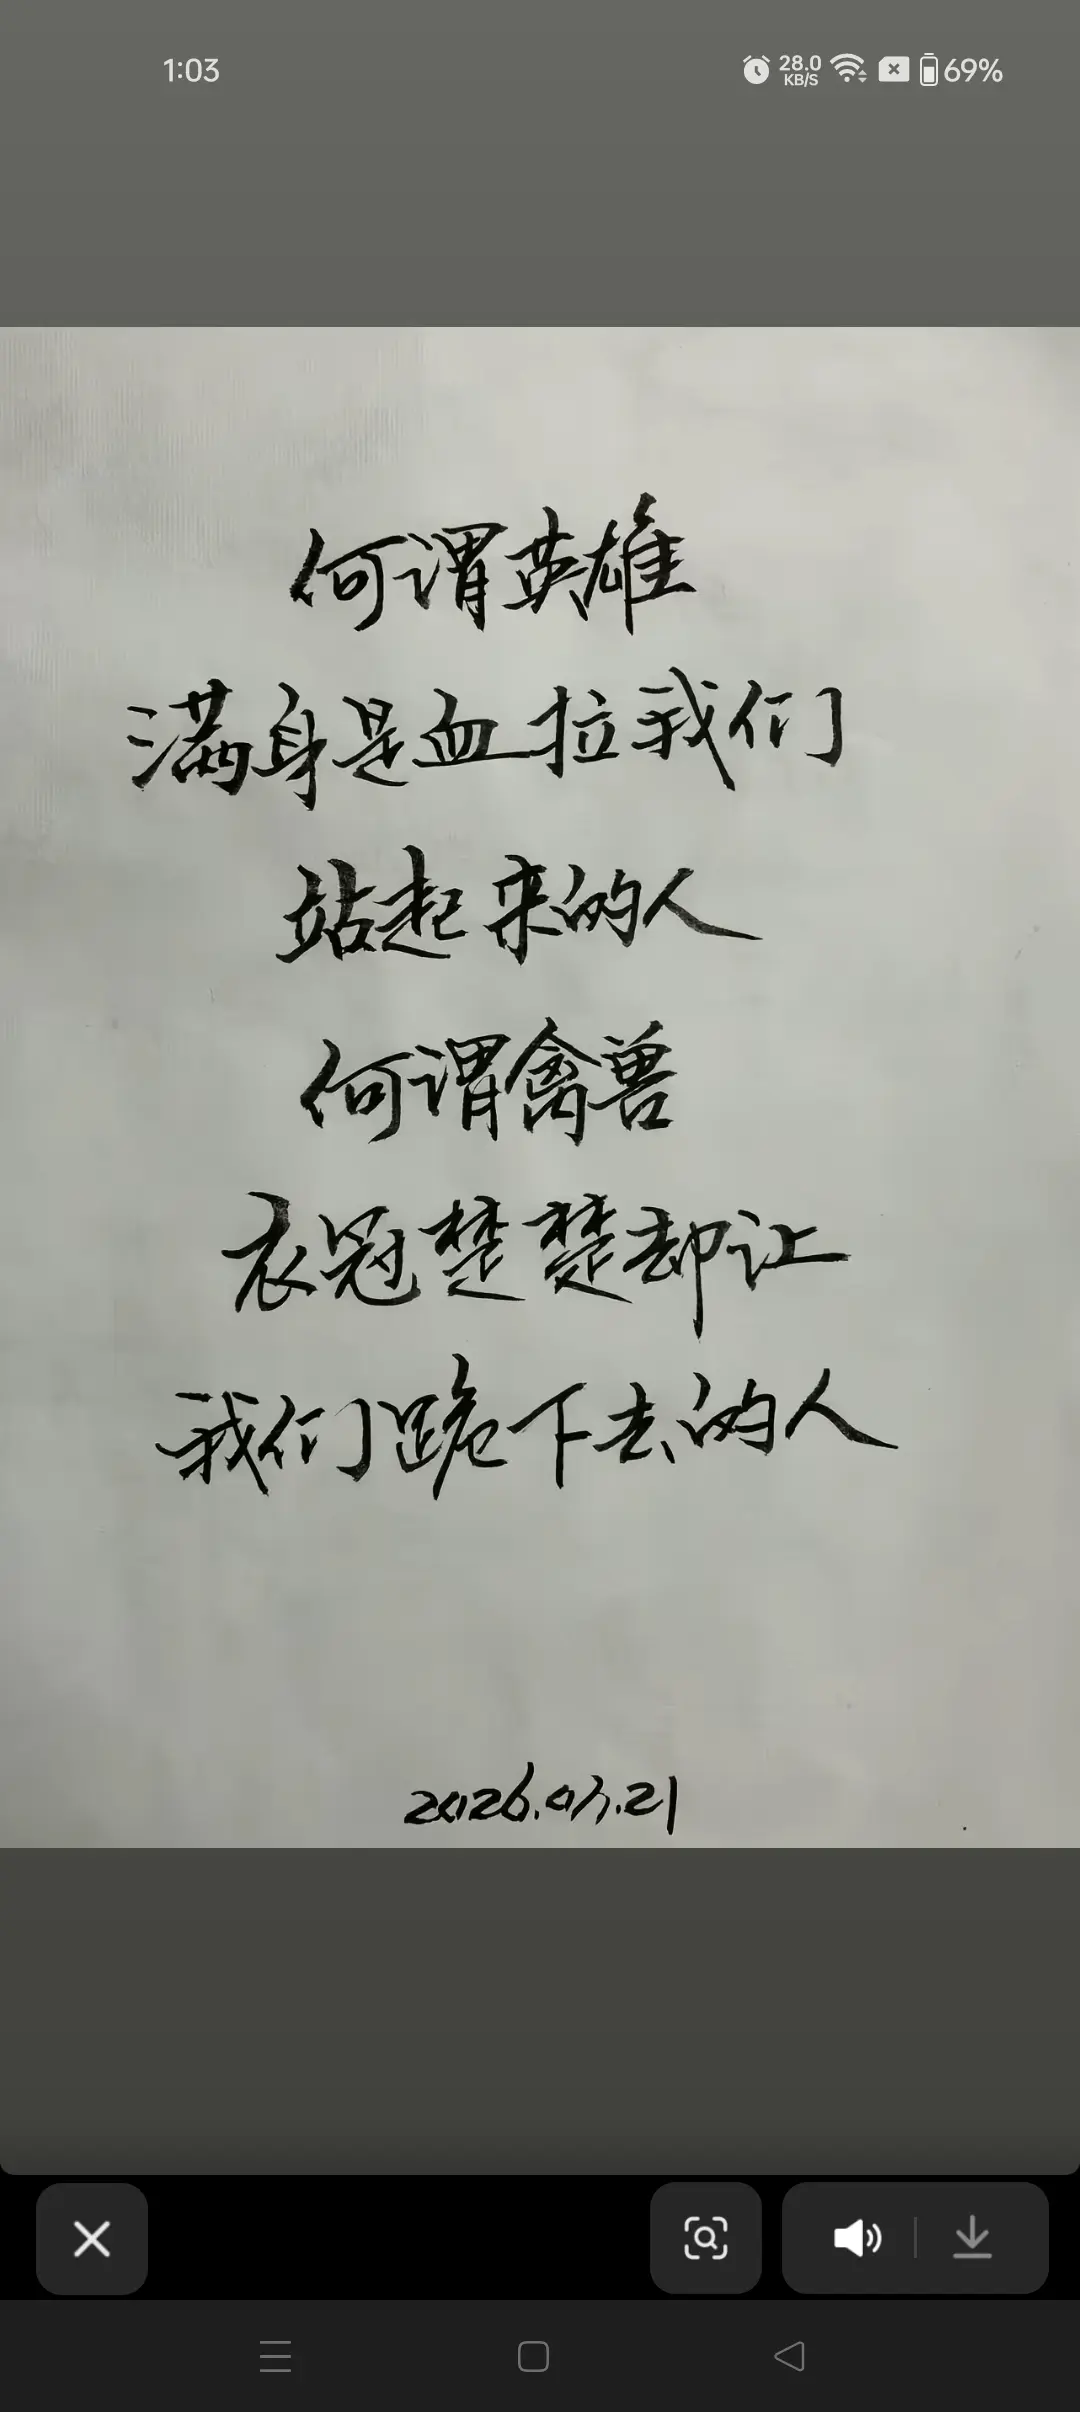 1:03 28.0 KB/S 69%
何谓英雄
满身是血拉我们
站起来的人
何谓禽兽
衣冠楚楚却让
我们跪下去的人
2026.03.21